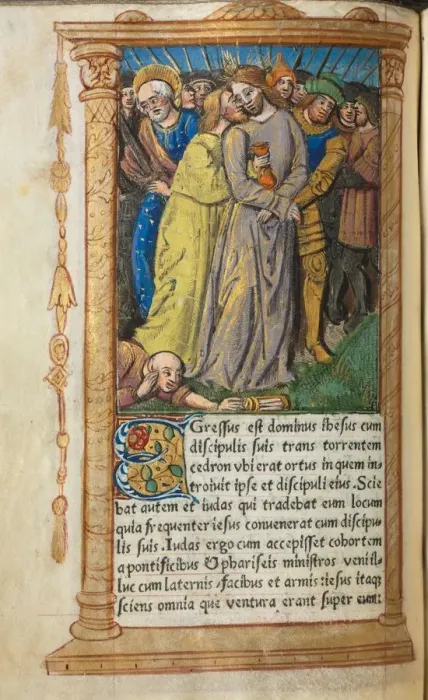 EGressus est dominus ihesus cum
discipulis suis trans torrentem
cedron vbi erat ortus in quem in-
troiuit ipse et discipuli eius. Scie
bat autem et iudas qui tradebat eum locum
quia frequenter iesus conuenerat cum discipu-
lis suis. Iudas ergo cum accepisset cohortem
a pontificibus & phariseis ministros venit il-
luc cum laternis, facibus et armis: iesus itaqȝ
sciens omnia que ventura erant super eum: